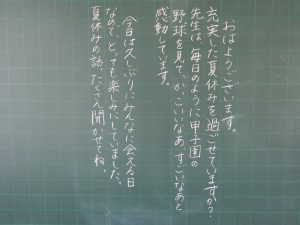 おはようございます。
充実した夏休みを過ごせていますか？
先生は、毎日のように甲子園の
野球を見て、かっこいいなあ、すごいなあと
感動しています。
今日は久しぶりにみんなに会える日
なので、とっても楽しみにしていました。
夏休みの話、たくさん聞かせてね。